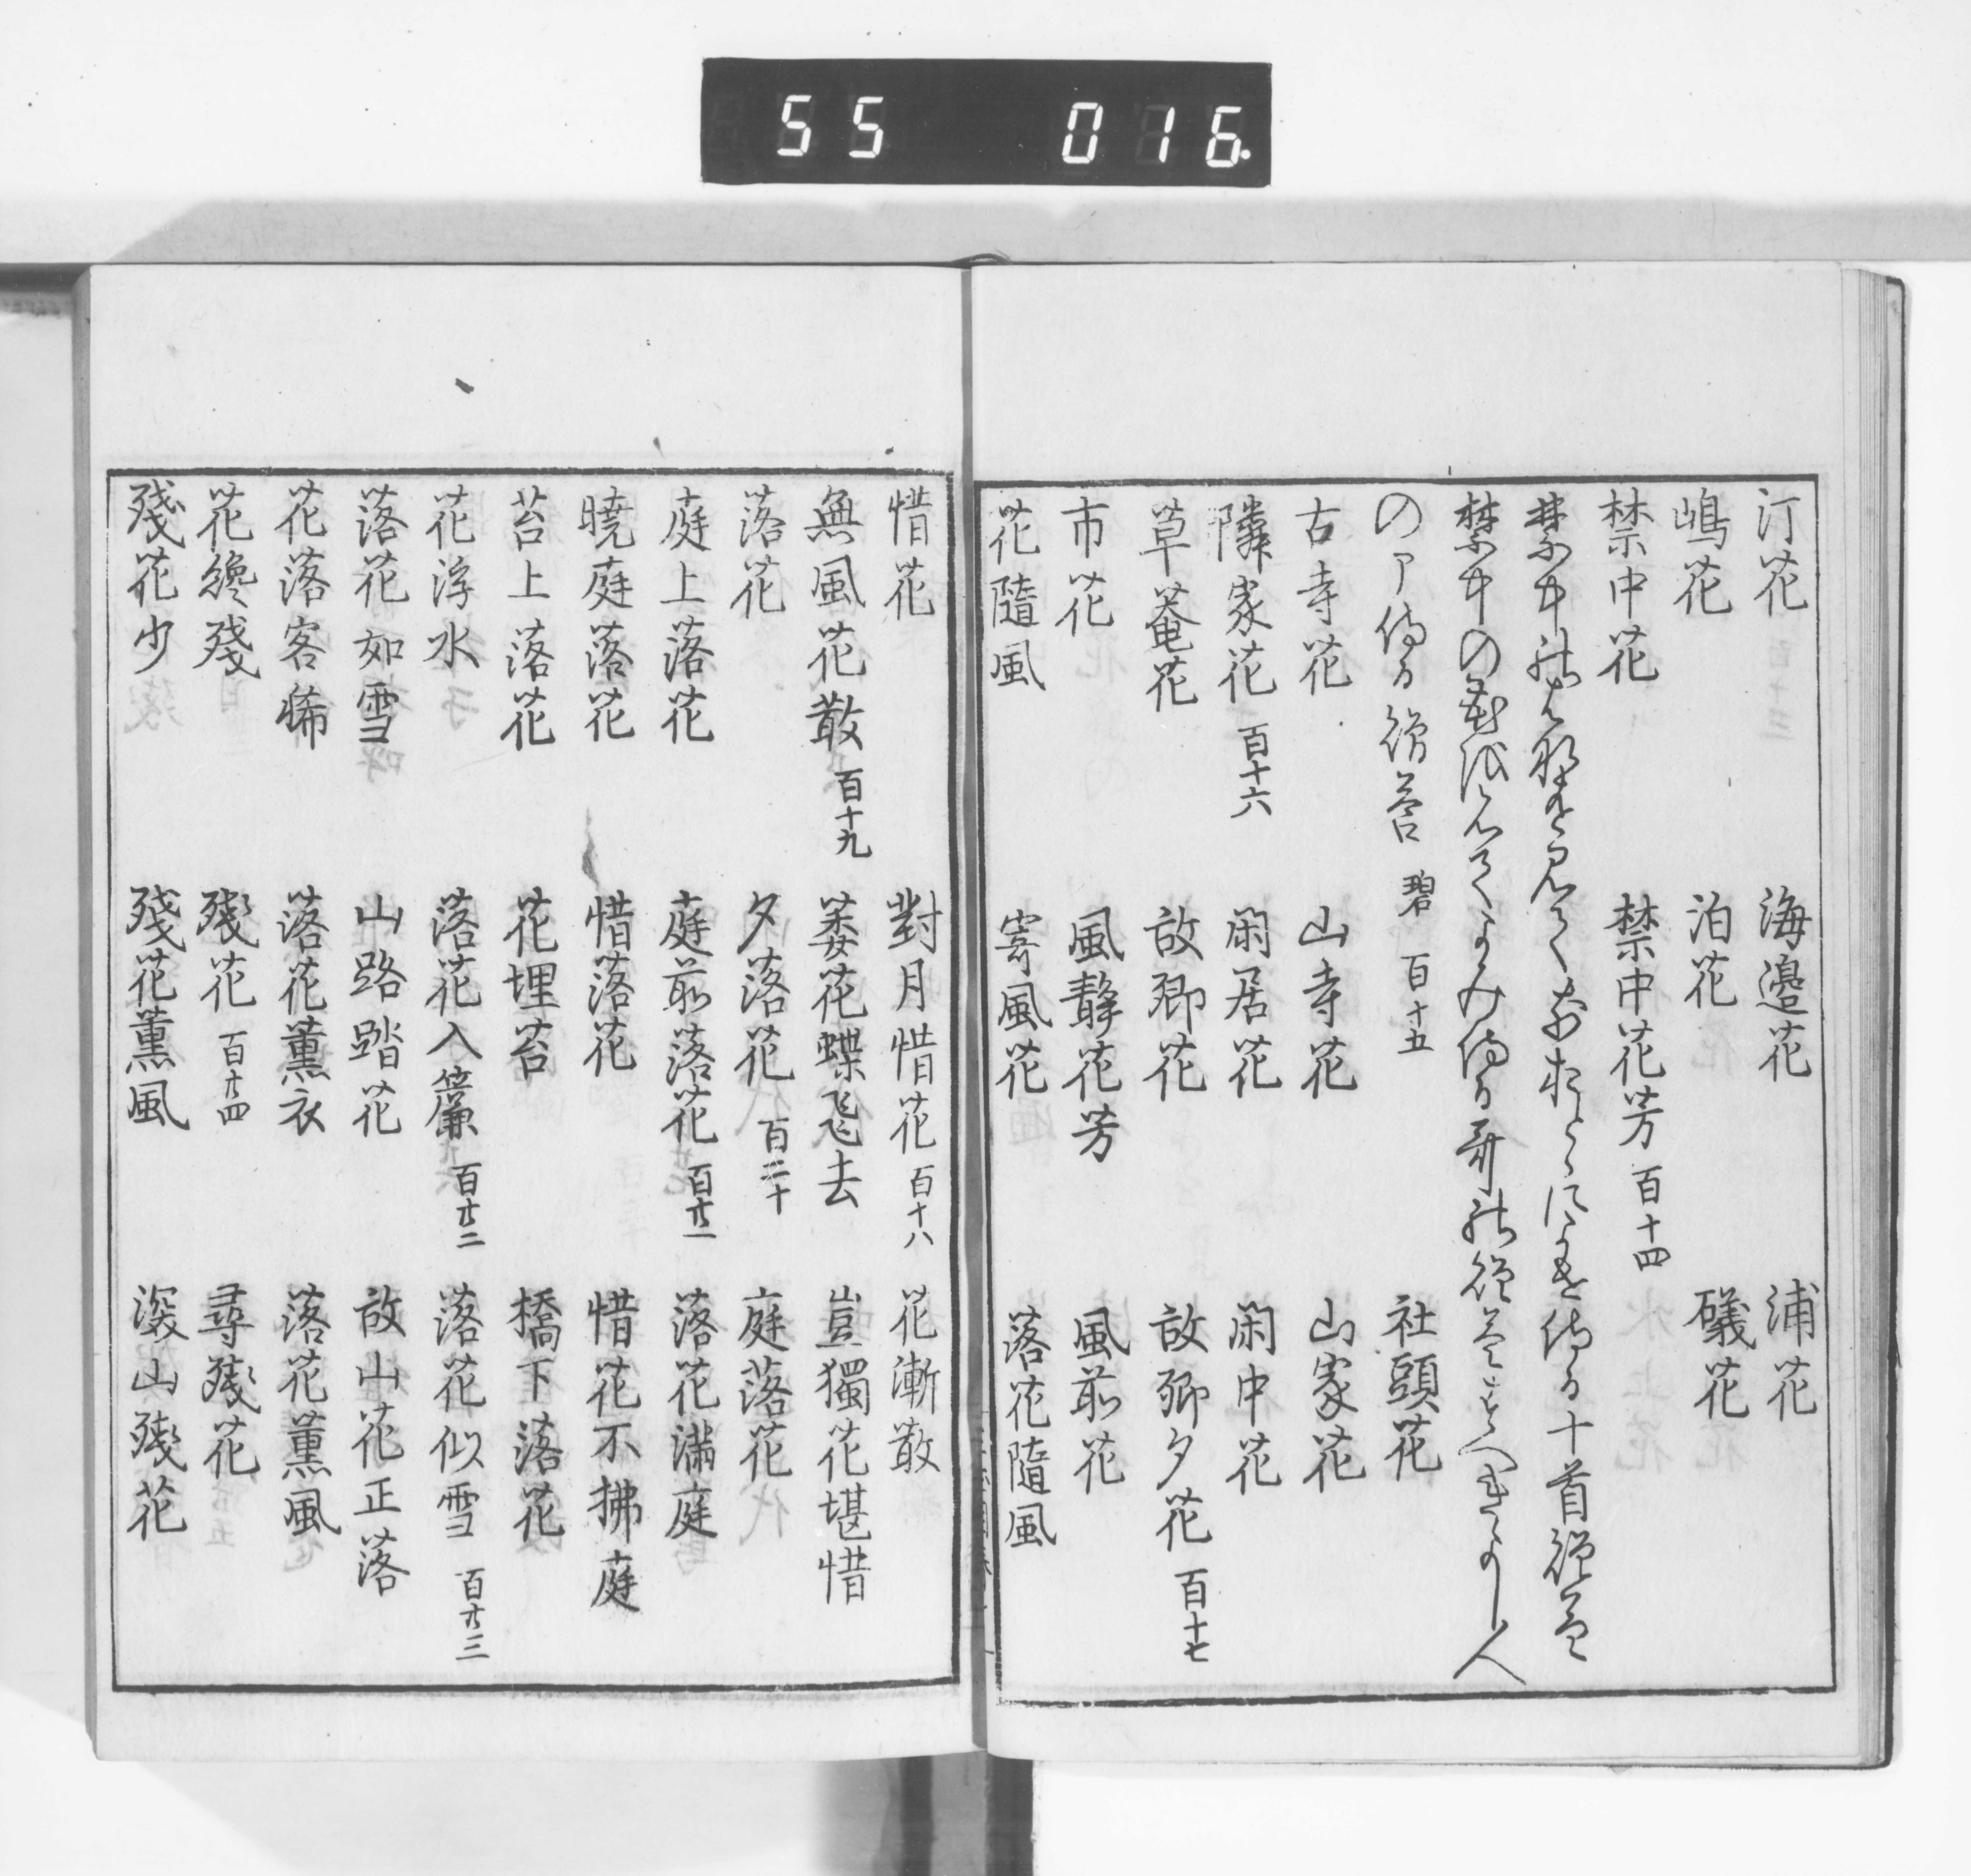 55 016.
汀花 海邊花 浦花
嶋花 泊花 礒花
禁中花 禁中花芳 百十四
十首
禁中の よみ侍る 人
の 侍る 贈答 碧 百十五 社頭花
古寺花 山寺花 山家花
隣家花 百十六 閑居花 閑中花
草菴花 故郷花 故郷夕花 百十七
市花 風靜花芳 風前花
花隨風 寄風花 落花隨風
惜花 對月惜花 百十八 花漸散
無風花散 百十九 萎花蝶飛去 豈獨花堪惜
落花 夕落花 百二十 庭落花
庭上落花 庭前落花 百廿一 落花滿庭
曉庭落花 惜落花 惜花不拂庭
苔上落花 花埋苔 橋下落花
花浮水 落花入簾 百廿二 落花似雪 百廿三
落花如雪 山路踏花 故山花正落
花落客稀 落花薫衣 落花薫風
花纔殘 殘花 百廿四 尋殘花
殘花少 殘花薫風 深山殘花